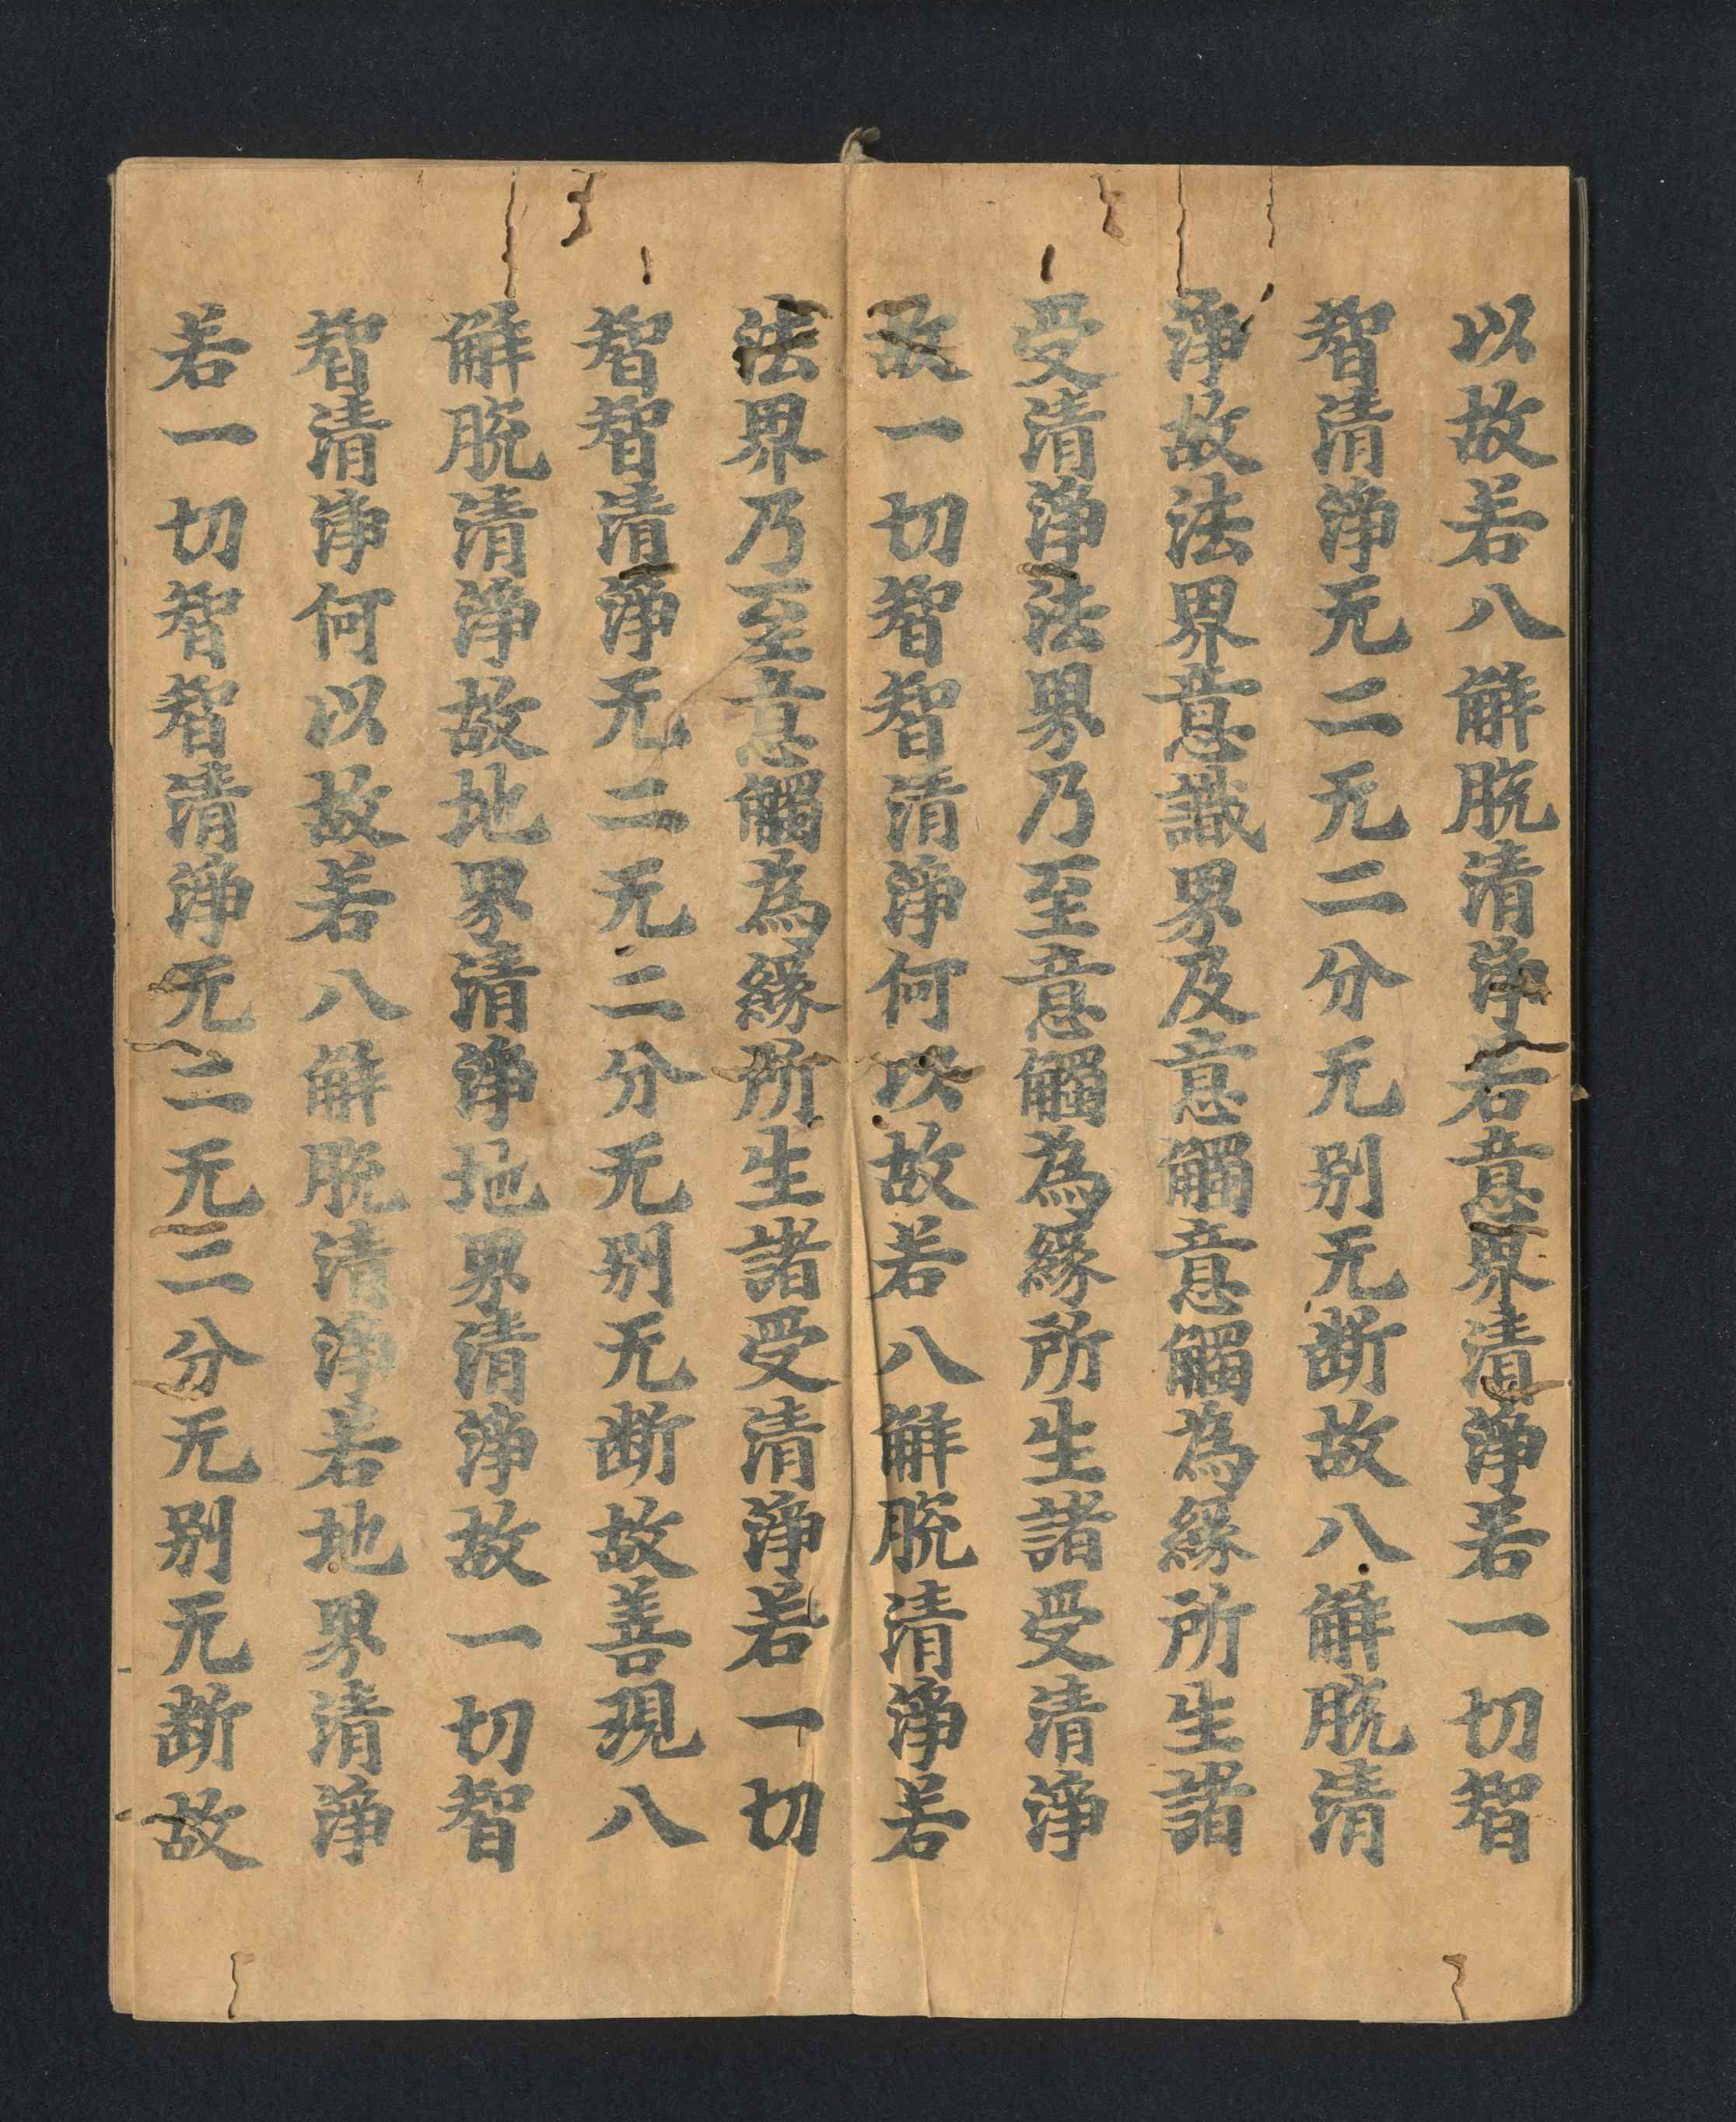 以故若八解脱清淨若意界清淨若一切智
智清淨无二无二分无别无断故八解脱清
淨故法界意識界及意觸意觸為緣所生諸
受清淨法界乃至意觸為緣所生諸受清淨
故一切智智清淨何以故若八解脱清淨若
法界乃至意觸為緣所生諸受清淨若一切
智智清淨无二无二分无别无断故善現八
解脱清淨故地界清淨地界清淨故一切智
智清淨何以故若八解脱清淨若地界清淨
若一切智智清淨无二无二分无别无断故